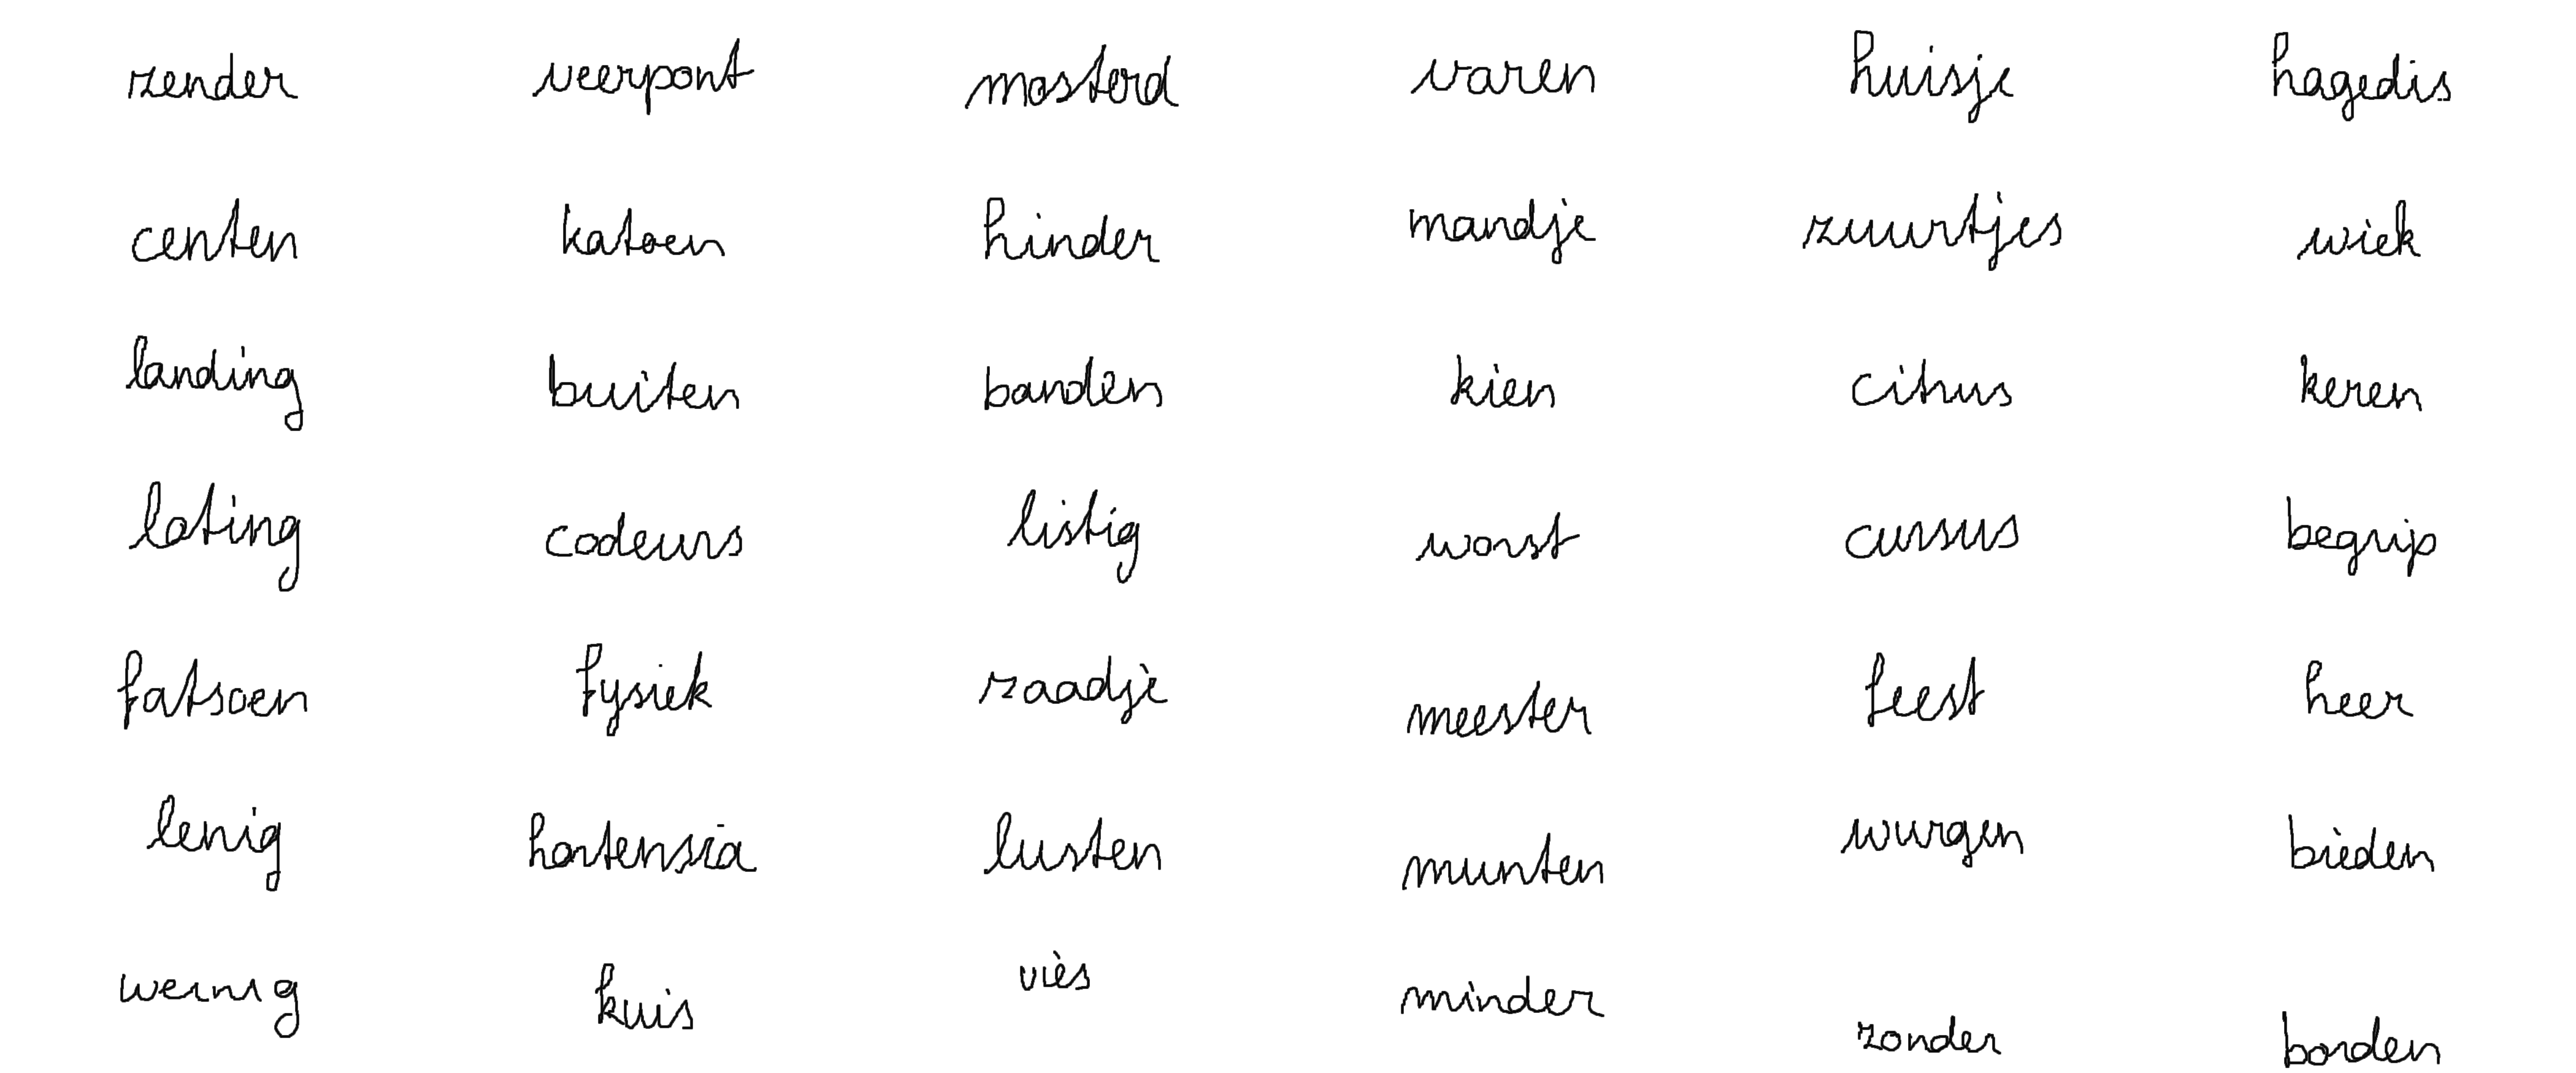 zender veerpont mosterd varen huisje hagedis
centen katoen hinder mandje zuurtjes wiek
landing buiten banden kien citrus keren
lating codeurs listig worst cursus begrip
fatsoen fysiek zaadje meester feest heer
lenig hortensia lusten munten wurgen bieden
weinig kuis viès minder zonder borden